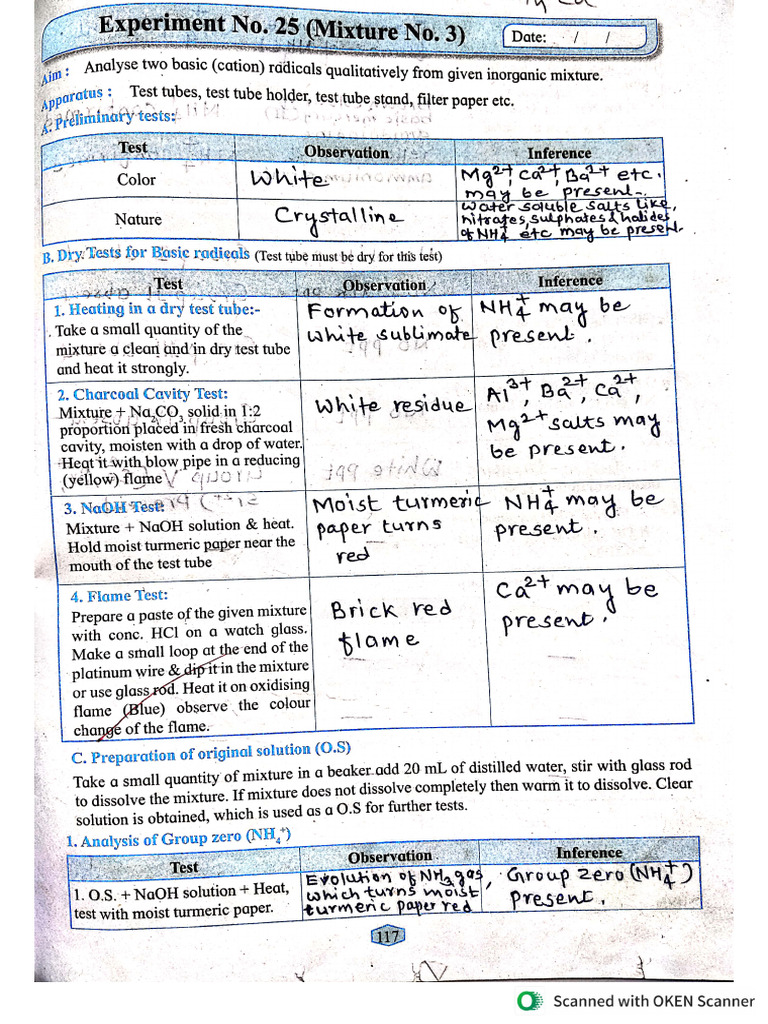 Experiment No. 25 (Mixture No. 3)
Date: / /
Aim : Analyse two basic (cation) radicals qualitatively from given inorganic mixture.
Apparatus : Test tubes, test tube holder, test tube stand, filter paper etc.
A. Preliminary tests:
Test Observation Inference
Color White Mg²⁺, Ca²⁺, Ba²⁺ etc.
may be present.
Nature Crystalline Water soluble salts like,
nitrates, sulphates & halides
of NH₄⁺ etc may be present.
B. Dry Tests for Basic radicals (Test tube must be dry for this test)
Test Observation Inference
1. Heating in a dry test tube:-
Take a small quantity of the
mixture a clean and in dry test tube
and heat it strongly.
Formation of
white sublimate
NH₄⁺ may be
present.
2. Charcoal Cavity Test:
Mixture + Na₂CO₃ solid in 1:2
proportion placed in fresh charcoal
cavity, moisten with a drop of water.
Heat it with blow pipe in a reducing
(yellow) flame
White residue
Al³⁺, Ba²⁺, Ca²⁺,
Mg²⁺ salts may
be present.
3. NaOH Test:
Mixture + NaOH solution & heat.
Hold moist turmeric paper near the
mouth of the test tube
Moist turmeric
paper turns
red
NH₄⁺ may be
present.
4. Flame Test:
Prepare a paste of the given mixture
with conc. HCl on a watch glass.
Make a small loop at the end of the
platinum wire & dip it in the mixture
or use glass rod. Heat it on oxidising
flame (Blue) observe the colour
change of the flame.
Brick red
flame
Ca²⁺ may be
present.
C. Preparation of original solution (O.S)
Take a small quantity of mixture in a beaker add 20 mL of distilled water, stir with glass rod
to dissolve the mixture. If mixture does not dissolve completely then warm it to dissolve. Clear
solution is obtained, which is used as a O.S for further tests.
1. Analysis of Group zero (NH₄⁺)
Test Observation Inference
1. O.S. + NaOH solution + Heat,
test with moist turmeric paper.
Evolution of NH₃ gas,
which turns moist
turmeric paper red
Group zero (NH₄⁺)
Present.
117
Scanned with OKEN Scanner